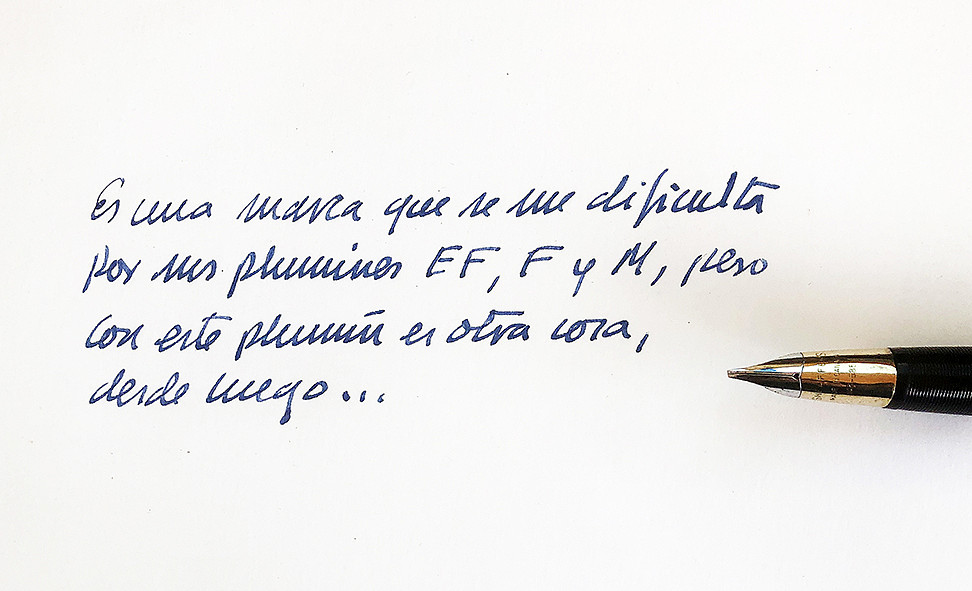 Es una marca que se me dificulta
por sus plumines EF, F y M, pero
con este plumín es otra cosa,
desde luego...